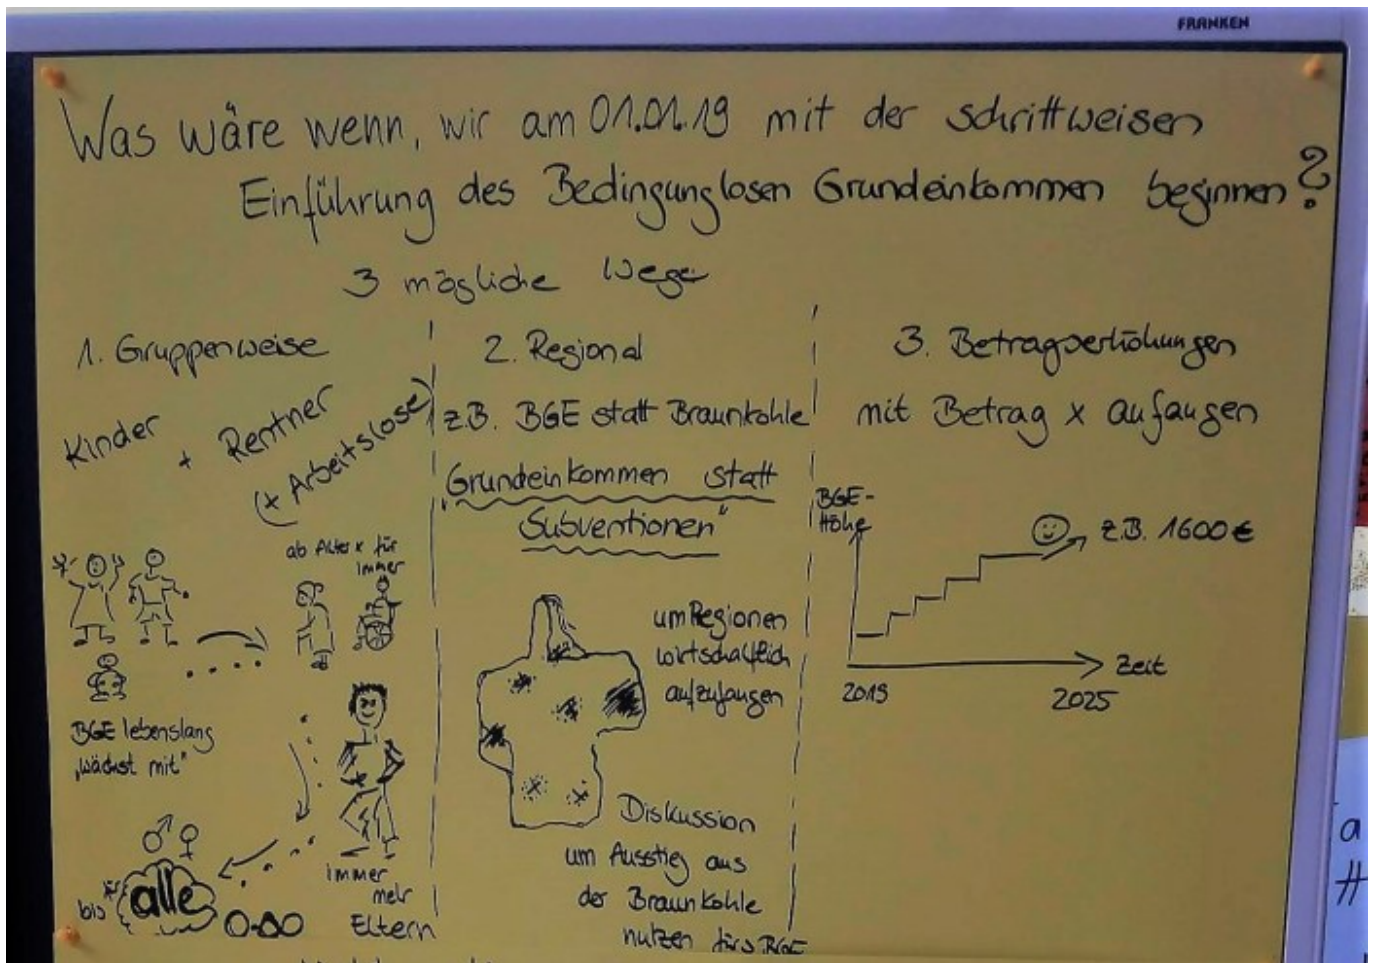 FRANKEN
Was wäre wenn, wir am 01.01.19 mit der schrittweisen
Einführung des Bedingunglosen Grundeinkommen beginnen?
3 mögliche Wege
1. Gruppenweise
Kinder + Rentner
(+ Arbeitslose)
ab Alter x für
immer
BGE lebenslang
„wächst mit"
immer
mehr
Eltern
bis für alle
2. Regional
z.B. BGE statt Braunkohle
Grundeinkommen statt
Subventionen"
um Regionen
wirtschaftlich
aufzufangen
Diskussion
um Ausstieg aus
der Braunkohle
nutzen fürs BGE
3. Betragserhöhungen
mit Betrag x anfangen
BGE-
Höhe
z.B. 1600 €
Zeit
2019
2025
a
#